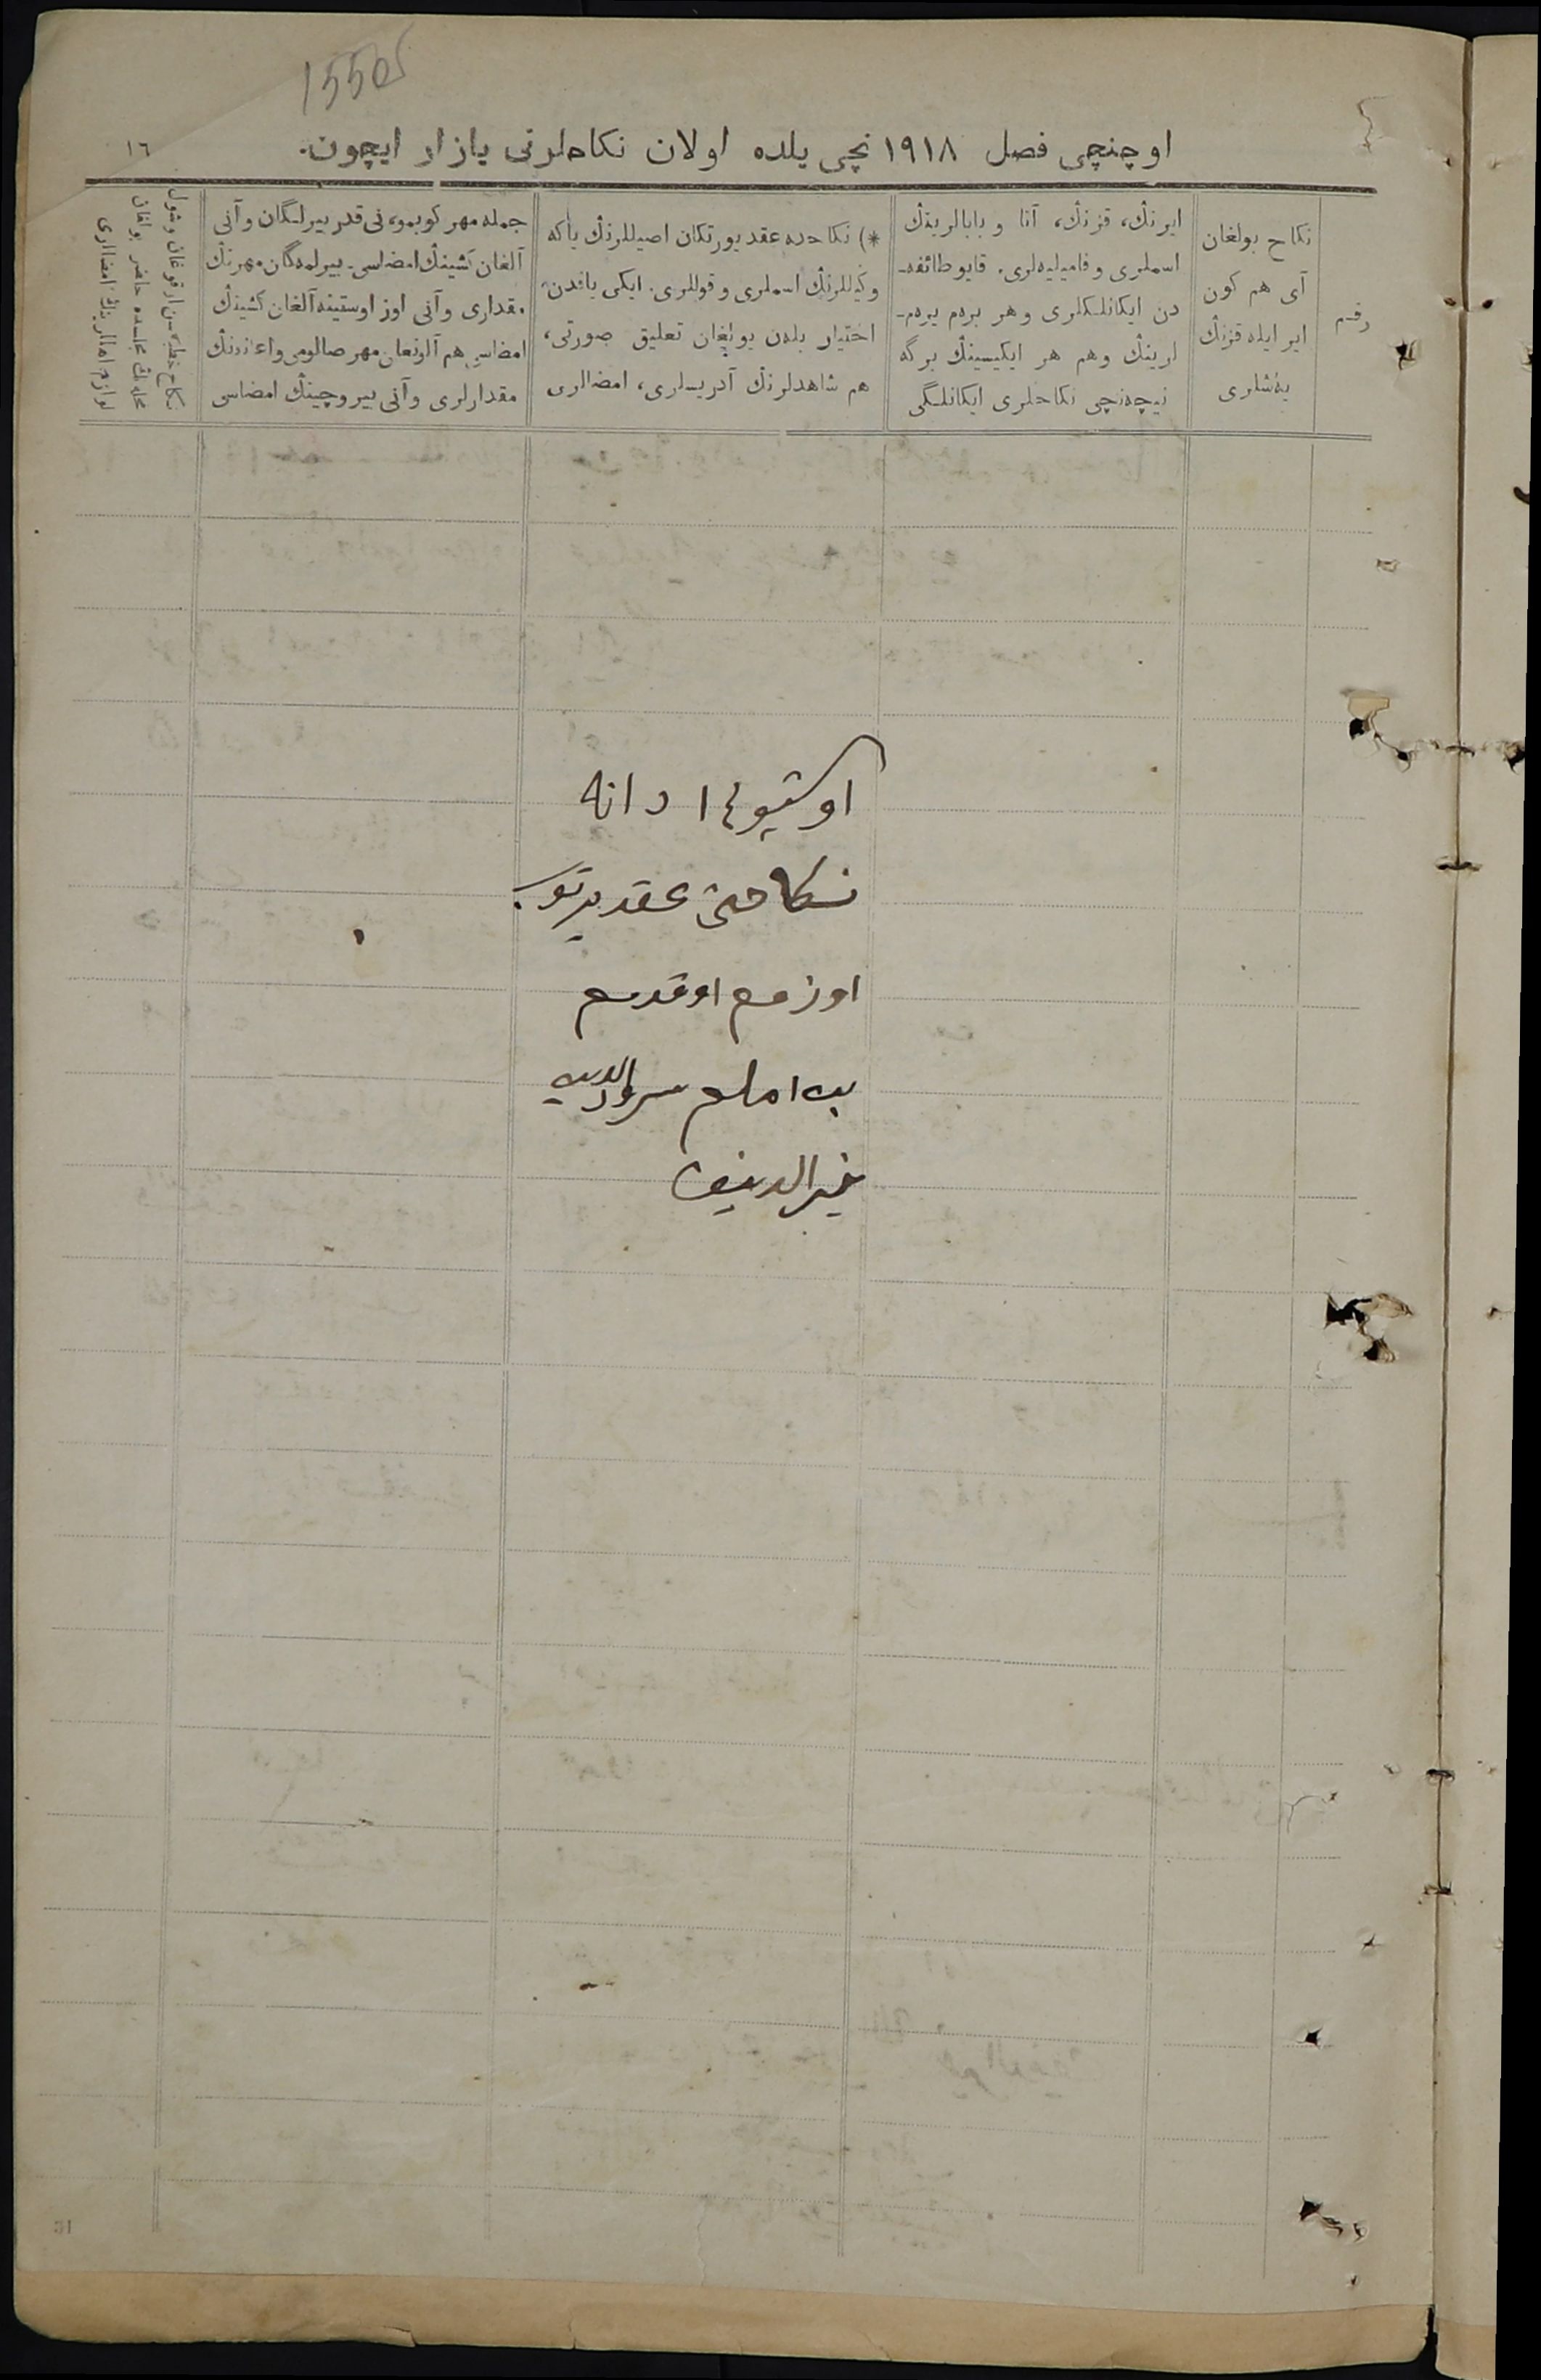 155об
اوچنچی فصل ١٩١٨ نچی یلده اولان نکاحلرنی یازار ایچون.
١٦
رقم
نکاح بولغان
آی هم کون
ایر ایله قزنڭ
یەشلری
ایرنڭ، قزنڭ، آنا و بابالرینڭ
اسملری و فامیلیەلری. قایو طائفە‌ـ
دن ایکانلکلری و هر بردم یردم‌ـ
لرینڭ وهم هر ایکیسینڭ برگه
نیچەنچی نکاحلری ایکانلگی
*) نکاحده عقد یورتکان اصیللرنڭ یاکه
وکیللرنڭ اسملری و قوللری. ایکی یاقدن
اختیار بلەن بولغان تعلیق صورتی،
هم شاهدلرنڭ آدریسلری، امضالری
جمله مهر کوبمو، نی قدر بیرلگان و آنی
آلغان کشینڭ امضاسی. بیرلمەگان مهرنڭ
مقداری و آنی اوز اوستینه آلغان کشینڭ
امضاسی هم آلونغان مهر صالومی واعانەنڭ
مقدارلری و آنی بیروچینڭ امضاسی
نکاح خطبەسن اوقوغان و شول
مجلسده حاضر بولغان
محلەنڭ لوازم اهاللرینڭ امضالری
اوشبو ١٤ دانه
نکاحنی عقد یورتوب
اوزم اوقدم
امام
خیرالدینوف
31